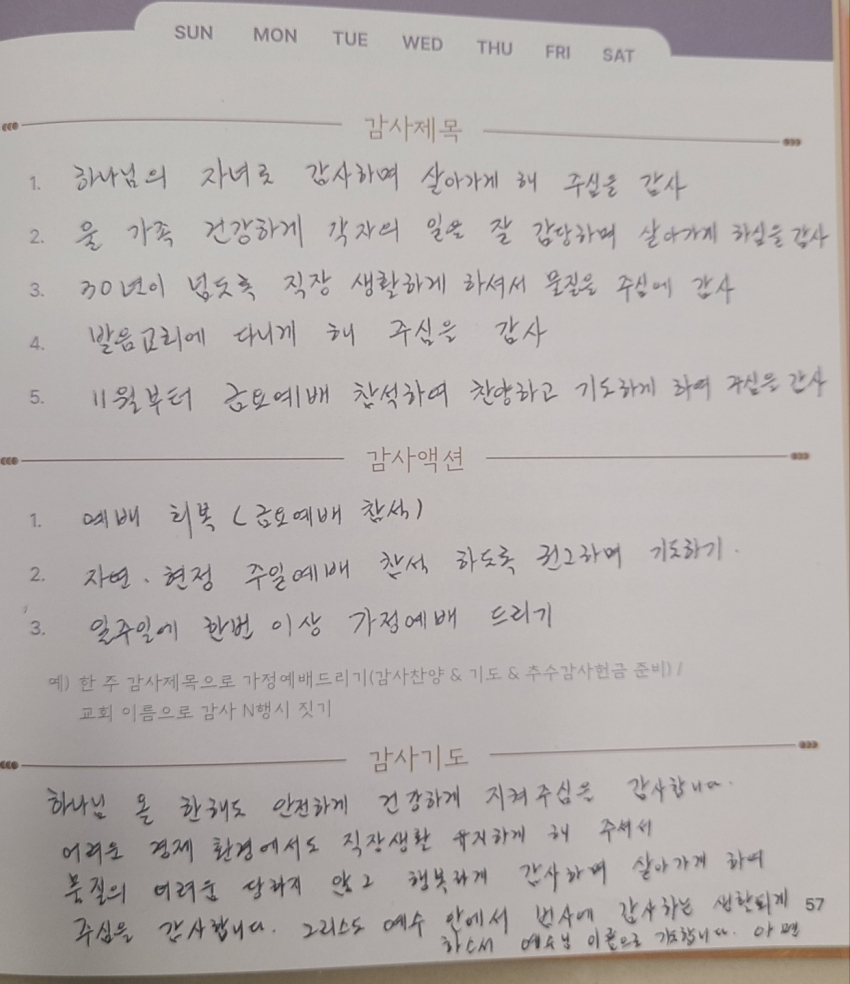 SUN MON TUE WED THU FRI SAT
감사제목
1. 하나님의 자녀로 감사하며 살아가게 해 주심을 감사
2. 울 가족 건강하게 각자의 일을 잘 감당하며 살아가게 하심을 감사
3. 30년이 넘도록 직장 생활하게 하셔서 물질을 주심에 감사
4. 발음교회에 다니게 해 주심을 감사
5. 11월부터 금요예배 참석하여 찬양하고 기도하게 하여 주심을 감사
감사액션
1. 예배 회복 (금요예배 참석)
2. 자연. 현정 주일예배 참석 하도록 권고하며 기도하기.
3. 일주일에 한번 이상 가정예배 드리기
예) 한 주 감사제목으로 가정예배드리기(감사찬양 & 기도 & 추수감사헌금 준비) /
교회 이름으로 감사 N행시 짓기
감사기도
하나님 올 한해도 안전하게 건강하게 지켜주심을 감사합니다.
어려운 경제 환경에서도 직장생활 유지하게 해 주셔서
물질의 어려움 당하지 않고 행복하게 감사하며 살아가게 하여
주심을 감사합니다. 그리스도 예수 안에서 범사에 감사하는 생활되게 57
하소서 예수님 이름으로 기도합니다. 아멘